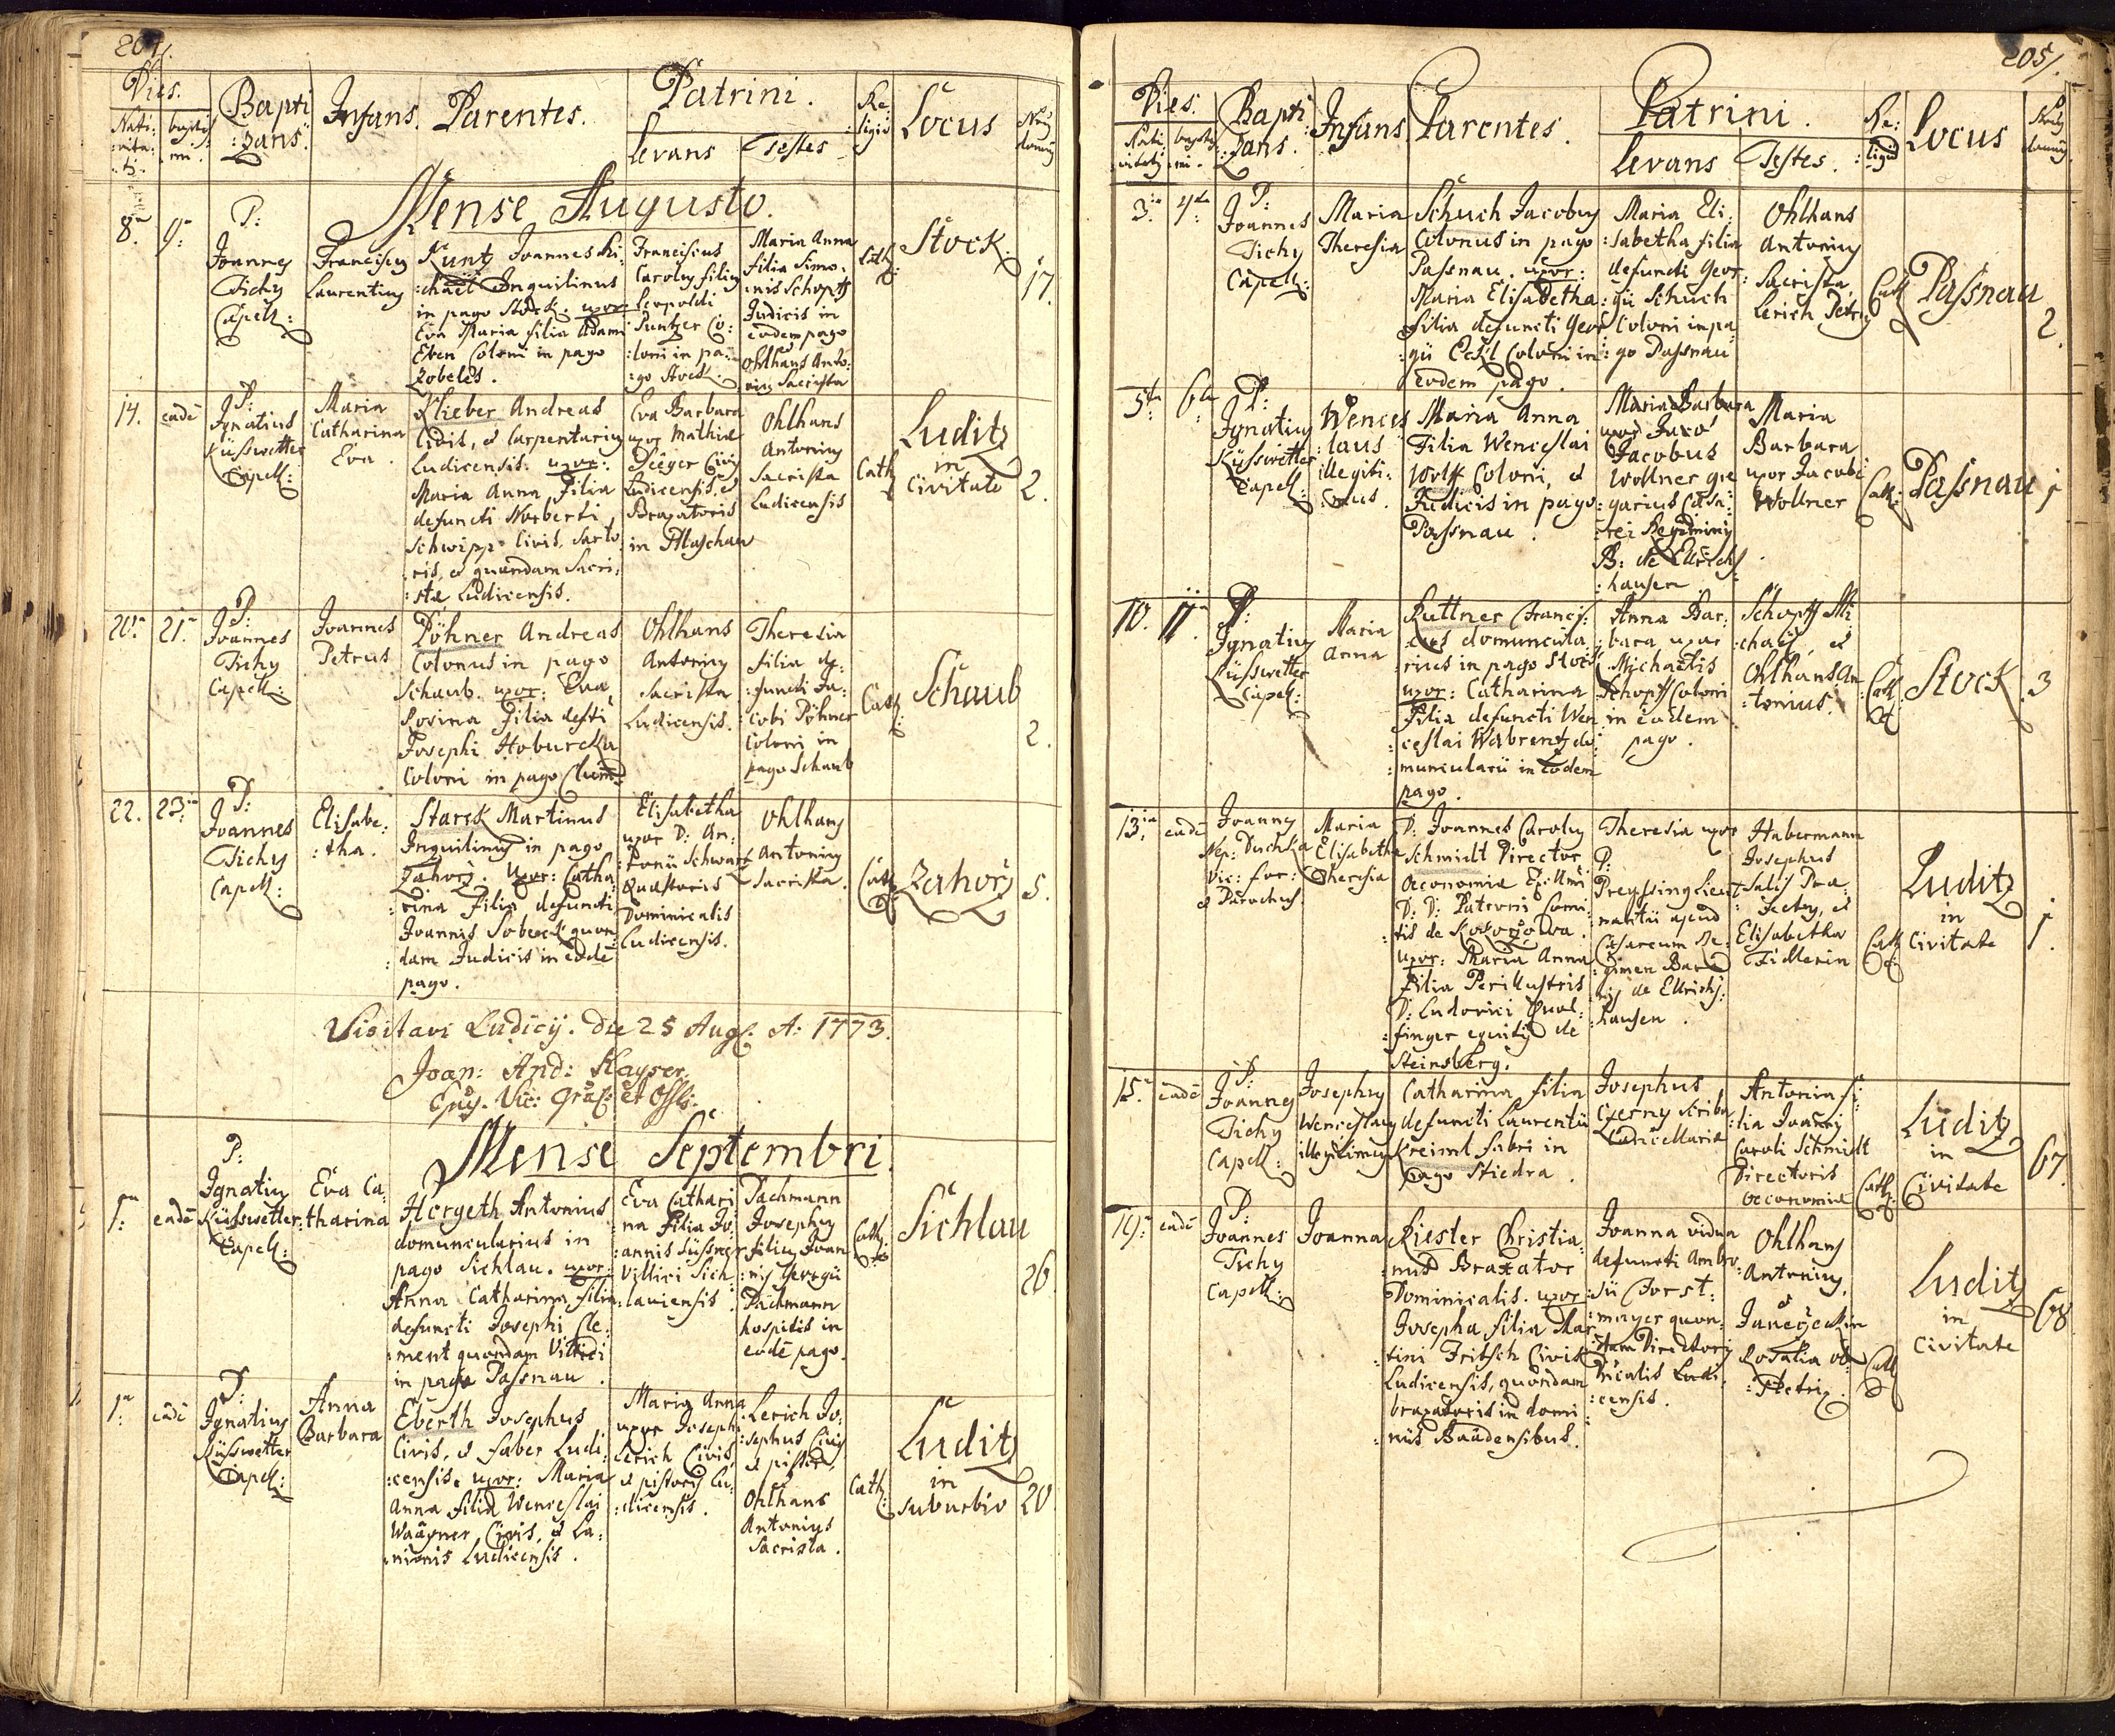 204/.
Dies.
Nati:
:vita:
:tis.
baptis
:mi.
Bapti
:zans.
Infans.
Parentes.
Patrini.
Levans
Testes
Re
:ligio
Locus
Nrus
domus
Mense Augusto.
8va
9na
P:
Joannes
Tichy
Capell:
Franciscus
Laurentius
Kuntz Joannes Mi:
:chael Inquilinus
in pago Stock. uxor
Eva Maria filia Adami
Eben Coloni in pago
Zobeles.
Franciscus
Carolus filius
Leopoldi
Suntzer Co:
:loni in pa:
:go Stock.
Maria Anna
filia Simo:
:nis Schopff
Judicis in
eodem pago
et
Ohlhans Anto:
:nius Sacrista
Cath:
Stock.
17.
14.
eadē
P:
Ignatius
Küsswetter
Capell:
Maria
Catharina
Eva.
Klieber Andreas
Civis, et Carpentarius
Ludicensis. uxor:
Maria Anna, Filia
defuncti Norberti
Schwipp Civis, Sarto
:ris, et quondam Sacri:
:stæ Ludicensis.
Eva Barbara
uxor Mathiæ
Seeger Civis
Ludicensis, et
Braxatoris
in Pllaschau
Ohlhans
Antonius
Sacrista
Ludicensis
Cath:
Luditz
in
Civitate
2.
20.
21.
P:
Joannes
Tichy
Capell:
Joannes
Petrus
Pöhner Andreas
Colonus in pago
Schaub. uxor: Eva
Rosina Filia defti
Josephi Hoburcka
Coloni in pago Chum
Ohlhans
Antonius
Sacrista
Ludicensis.
Theresia
filia de:
:functi Ja:
:cobi Pöhner
Coloni in
pago Schaub
Cath:
Schaub
2.
22.
23.
P:
Joannes
Tichy
Capell:
Elisabe:
:tha.
Starck Martinus
Inquilinus in pago
Zahorz. Uxor: Catha
:rina Filia defuncti
Joannis Sobeck quon
:dam Judicis in eodē
pago.
Elisabetha
uxor D: An:
:tonii Schwartz
Quæstoris
Dominicalis
Ludicensis.
Ohlhans
Antonius
Sacrista.
Cath:
Zahorz
5.
Visitavi Ludicÿ. Die 25 Augs. A: 1773.
Joan: And: Kayser
Mense Septembri.
1ma
eadē
P:
Ignatius
Küsswetter
Capell:
Eva Ca:
:tharina
Hergeth Antonius
domuncularius in
pago Sichlau. uxor:
Anna Catharina filia
defuncti Josephi Cle:
:ment quondam Villici
in pago Passnau.
Eva Cathari
na Filia Jo:
:annis Süssner
Villici Sich:
:lauiensis.
Pachmann
Josephus
filius Joan
:nis Georgii
Pachmann
hospitis in
eodē pago.
Cath:
Sichlau
26.
1ma
eadē
P:
Ignatius
Küsswetter
Capell:
Anna
Barbara
Eberth Josephus
Civis, et faber Ludi:
:censis. uxor: Maria
Anna filia Wenceslai
Waagner Civis, et La:
:nionis Ludicensis.
Maria Anna
uxor Josephi
Lerich Civis,
et pistoris Lu:
:dicensis.
Lerich Jo:
:sephus Civis
et pistor,
et
Ohlhans
Antonius
Sacrista.
Cath:
Luditz
in
suburbio
20.
205/.
Dies.
Nati
:vitatis
baptis
:mi.
Bapti
:zans.
Infans
Parentes.
Patrini.
Levans
Testes.
Re:
:ligio
Locus
Nrus
domus
3.
4ta
P:
Joannes
Tichy
Capell:
Maria
Theresia
Schuch Jacobus
Colonus in pago
Passnau. uxor:
Maria Elisabetha
filia defuncti Geor
:gii Eckl Coloni in
eodem pago.
Maria Eli:
:sabetha filia
defuncti Geor:
:gii Schuch
Coloni in pa
:go Passnau
Ohlhans
Antonius
Sacrista.
Lerich Petrus
Cath
Passnau
2.
5ta
6ta
P:
Ignatius
Küsswetter
Capell:
Wences
:laus
illegiti:
:mus.
Maria Anna
Filia Wenceslai
Wolff Coloni, et
Judicis in pago
Passnau.
Maria Barbara
uxor Jaco
Jacobus
Wollner gre
:garius Cæsa:
:rei Regiminis
B: de Ellrichs
:hausen
Maria
Barbara
uxor Jacobi
Wollner
Cath:
Passnau
1
10.
11.
P:
Ignatius
Küsswetter
Capell:
Maria
Anna
Kuttner Francis:
:cus domuncula:
:rius in pago Stock
uxor: Catharina
Filia defuncti Wen
:ceslai Wabrentz do:
:muncularii in eodem
pago.
Anna Bar:
:bara uxor
Michaelis
Schopff Coloni
in eodem
pago.
Schopff Mi
:chael, et
Ohlhans An
:tonius.
Cath:
Stock
3
13.
eadē
Joannes
Nep: Duchka
Vic: for:
et Parochus.
Maria
Elisabetha
Theresia
D: Joannes Carolus
Schmidt Director
Oeconomiæ
D: D: Patroni Comi:
:tis de Kokorzowa.
uxor: Maria Anna
Filia Perillustris
D: Ludovici
:finger equitis de
Steinsberg.
Theresia uxor
P:
Preyssing Lieut:
:nantii apud
Cæsareum Re:
:gimen Baro
:nis de Ellrichs:
:hausen.
Habermann
Josephus
Salis Præ:
:fectus, et
Elisabetha
Fidlerin
Cath
Luditz
in
Civitate
1.
15.
eadē
P:
Joannes
Tichy
Capell:
Josephus
Wenceslaus
illegitimus
Catharina filia
defuncti Laurentii
Kreiml fabri in
pago Stiedra.
Josephus
Czerny Scriba
Cancellariæ
Antonia fi:
:lia Joannis
Caroli Schmidt
Directoris
Oeconomiæ
Cath:
Luditz
in
Civitate
67.
19.
eadē
P:
Joannes
Tichy
Capell:
Joanna
Kiester Christia:
:nus Braxator
Dominicalis. uxor
Josepha filia Mar
:tini Fritsch Civis
Ludicensis, quondam
braxatoris in domi
:niis Baudensibus.
Joanna vidua
defuncti Ambro
:sii Forst:
:mayer quon:
:dam Directoris
Ludi:
:censis.
Ohlhans
Antonius,
et
Janeczckin
Rosalia
Cath
Luditz
in
Civitate
68